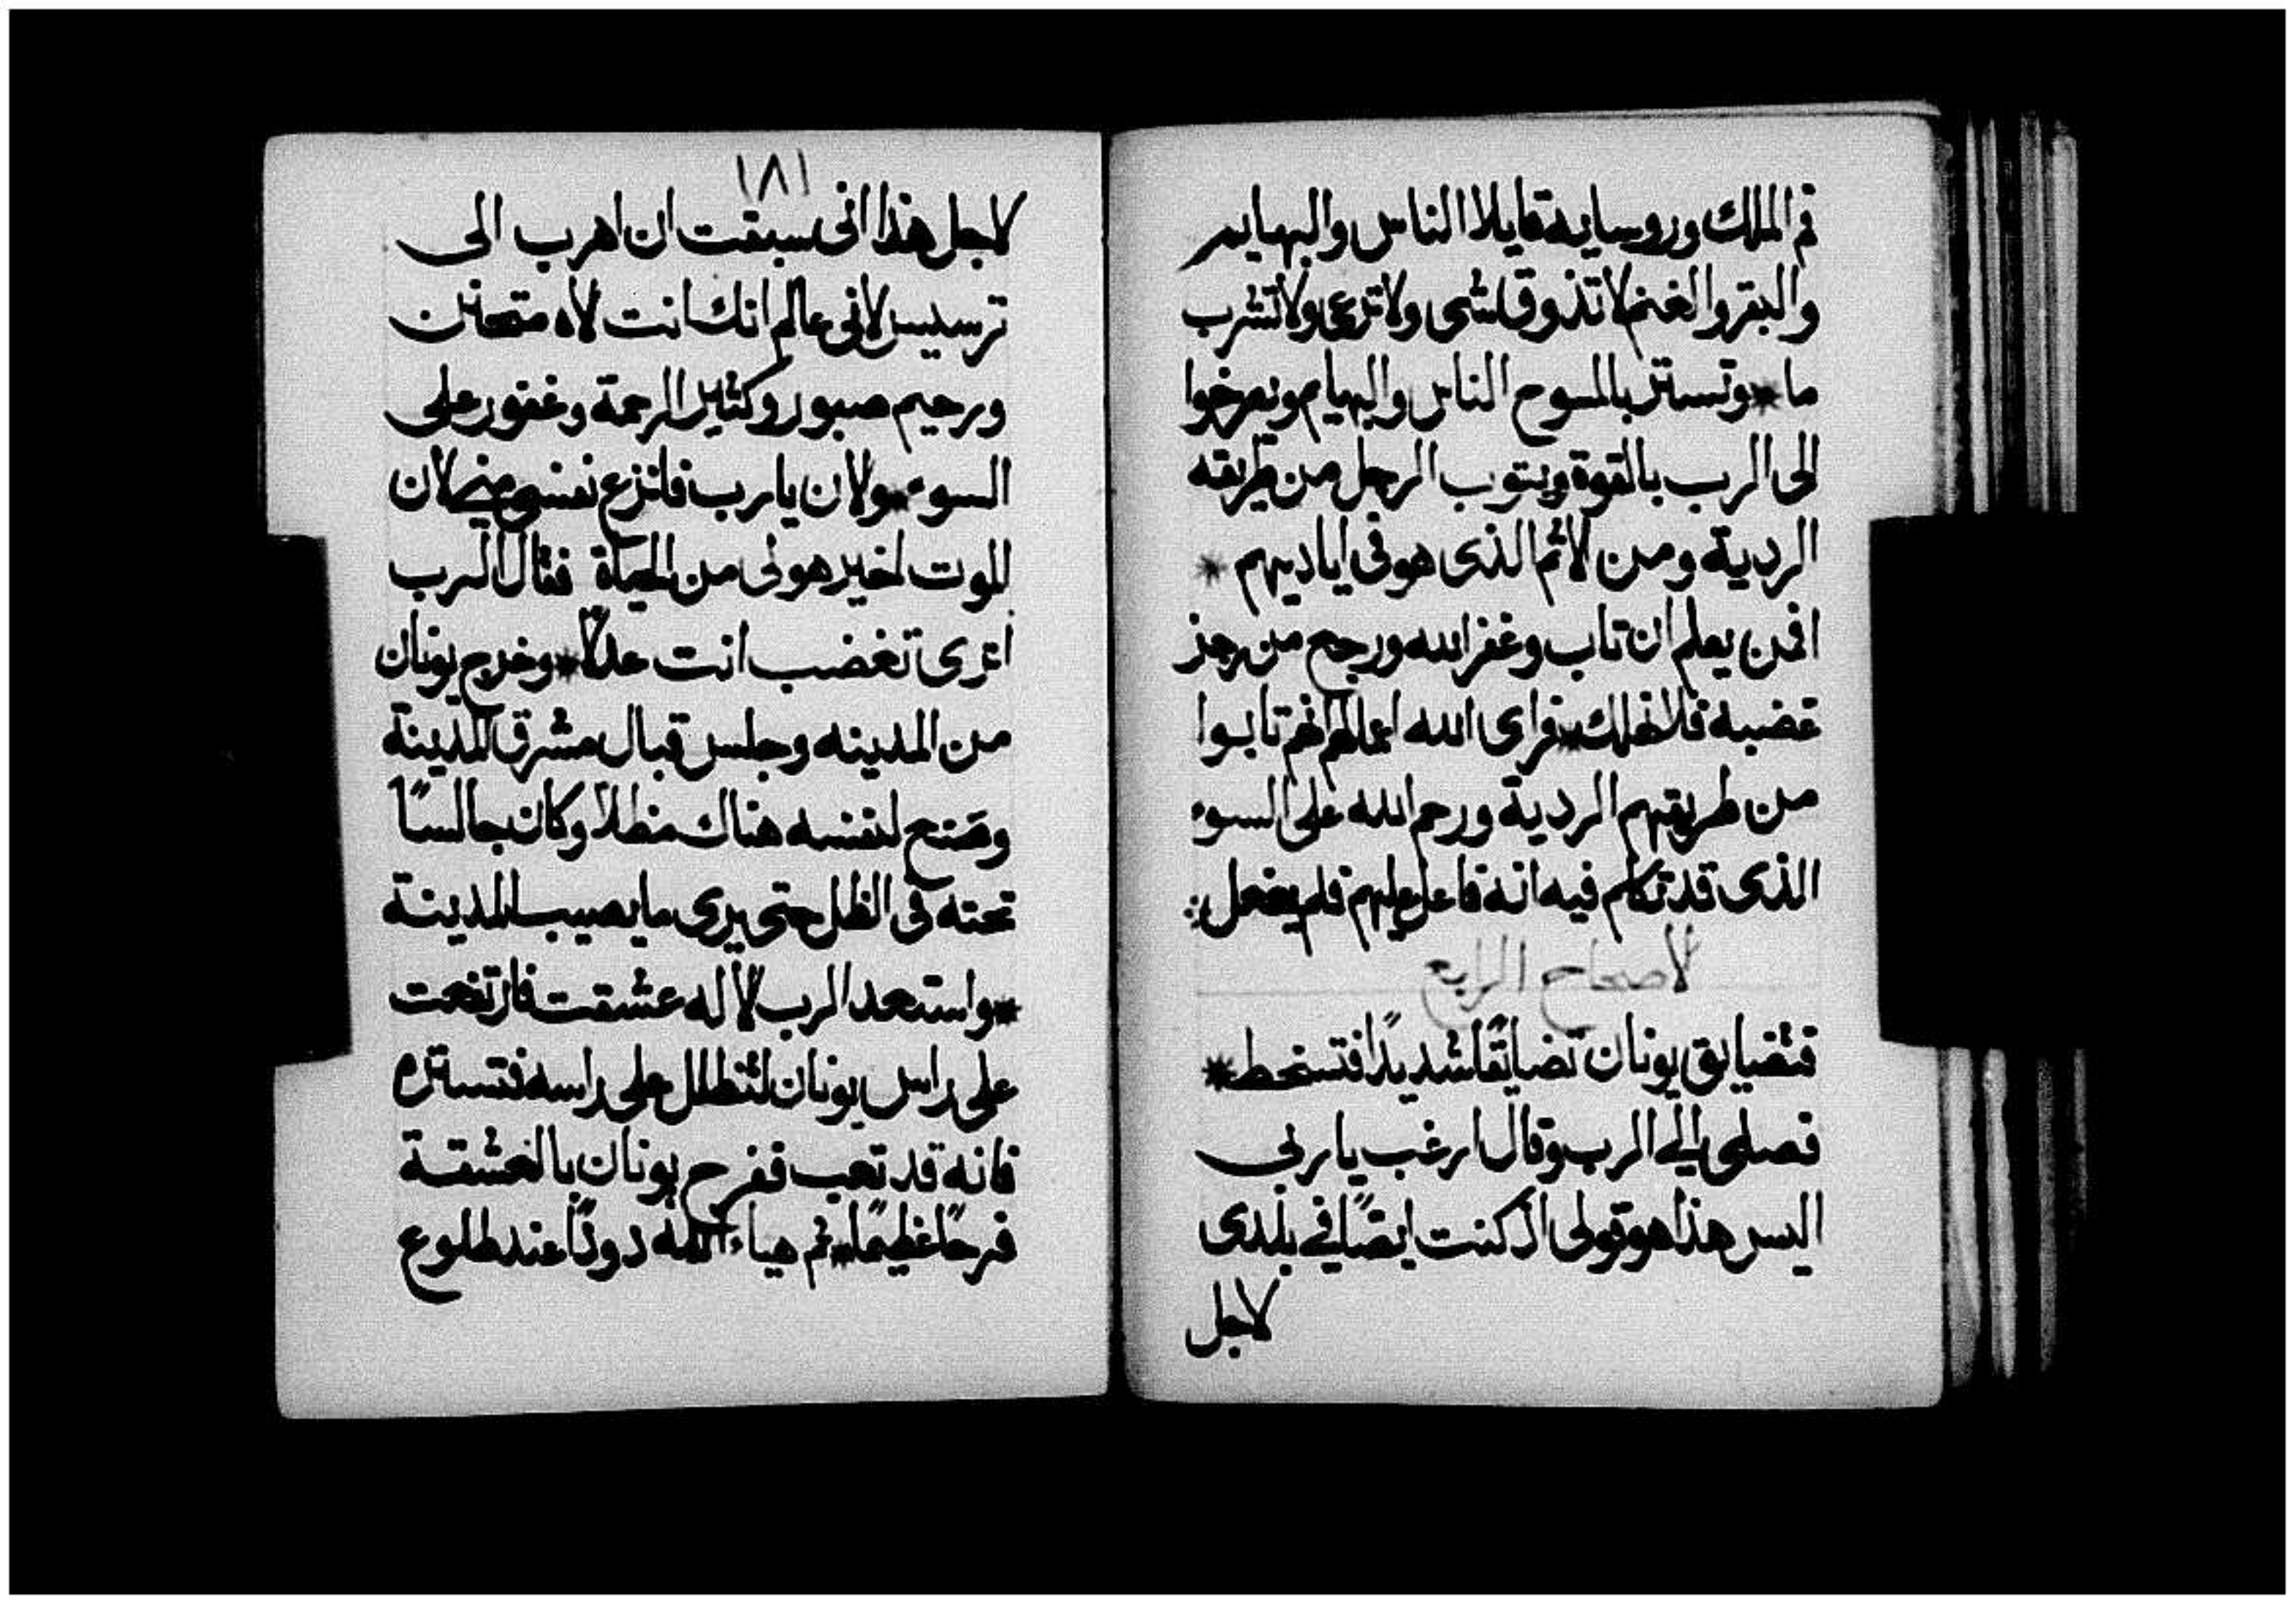 فم الملك وروسايه قايلا الناس والبهايم
والبقر والغنم لا تذوق شى ولا ترعى ولا تشرب
ما * وتستتر بالمسوح الناس والبهايم ويصرخوا
الى الرب بالقوة ويتوب الرجل من طريقه
الردية ومن لاثم الذى هو فى اياديهم *
افمن يعلم ان تاب وغفر الله ورجع من رجز
غضبه فلا نهلك * فراى الله اعمالهم انهم تابوا
من طريقهم الردية ورحم الله على السوء
الذى قد تكلم فيه انه فاعل عليهم فلم يفعل
لاصحاح الرابع
فتضايق يونان تضايقًا شديدًا فتسخط *
فصلى الى الرب وقال ارغب يا ربى
اليس هذا هو قولى اذ كنت ايضًا في بلدى
لاجل
١٨١
لاجل هذا انى سبقت ان اهرب الى
ترسيس لانى عالم انك انت لاه متحنن
ورحيم صبور وكثير الرحمة وغفور على
السوء * ولان يا رب فانزع نفسى منى لان
الموت لخير هو لى من الحياة فقال الرب
اترى تغضب انت عدلًا * وخرج يونان
من المدينه وجلس قبال مشرق المدينة
وصنع لنفسه هناك مظلا وكان جالسًا
تحته فى الظل حتى يرى ما يصيب المدينة
* واستعد الرب لاله عشقت فارتفعت
على راس يونان لتظلل على راسه فتستره
فانه قد تعب ففرح يونان بالعشقة
فرحًا عظيمًا * ثم هياء الله دودًا عند طلوع